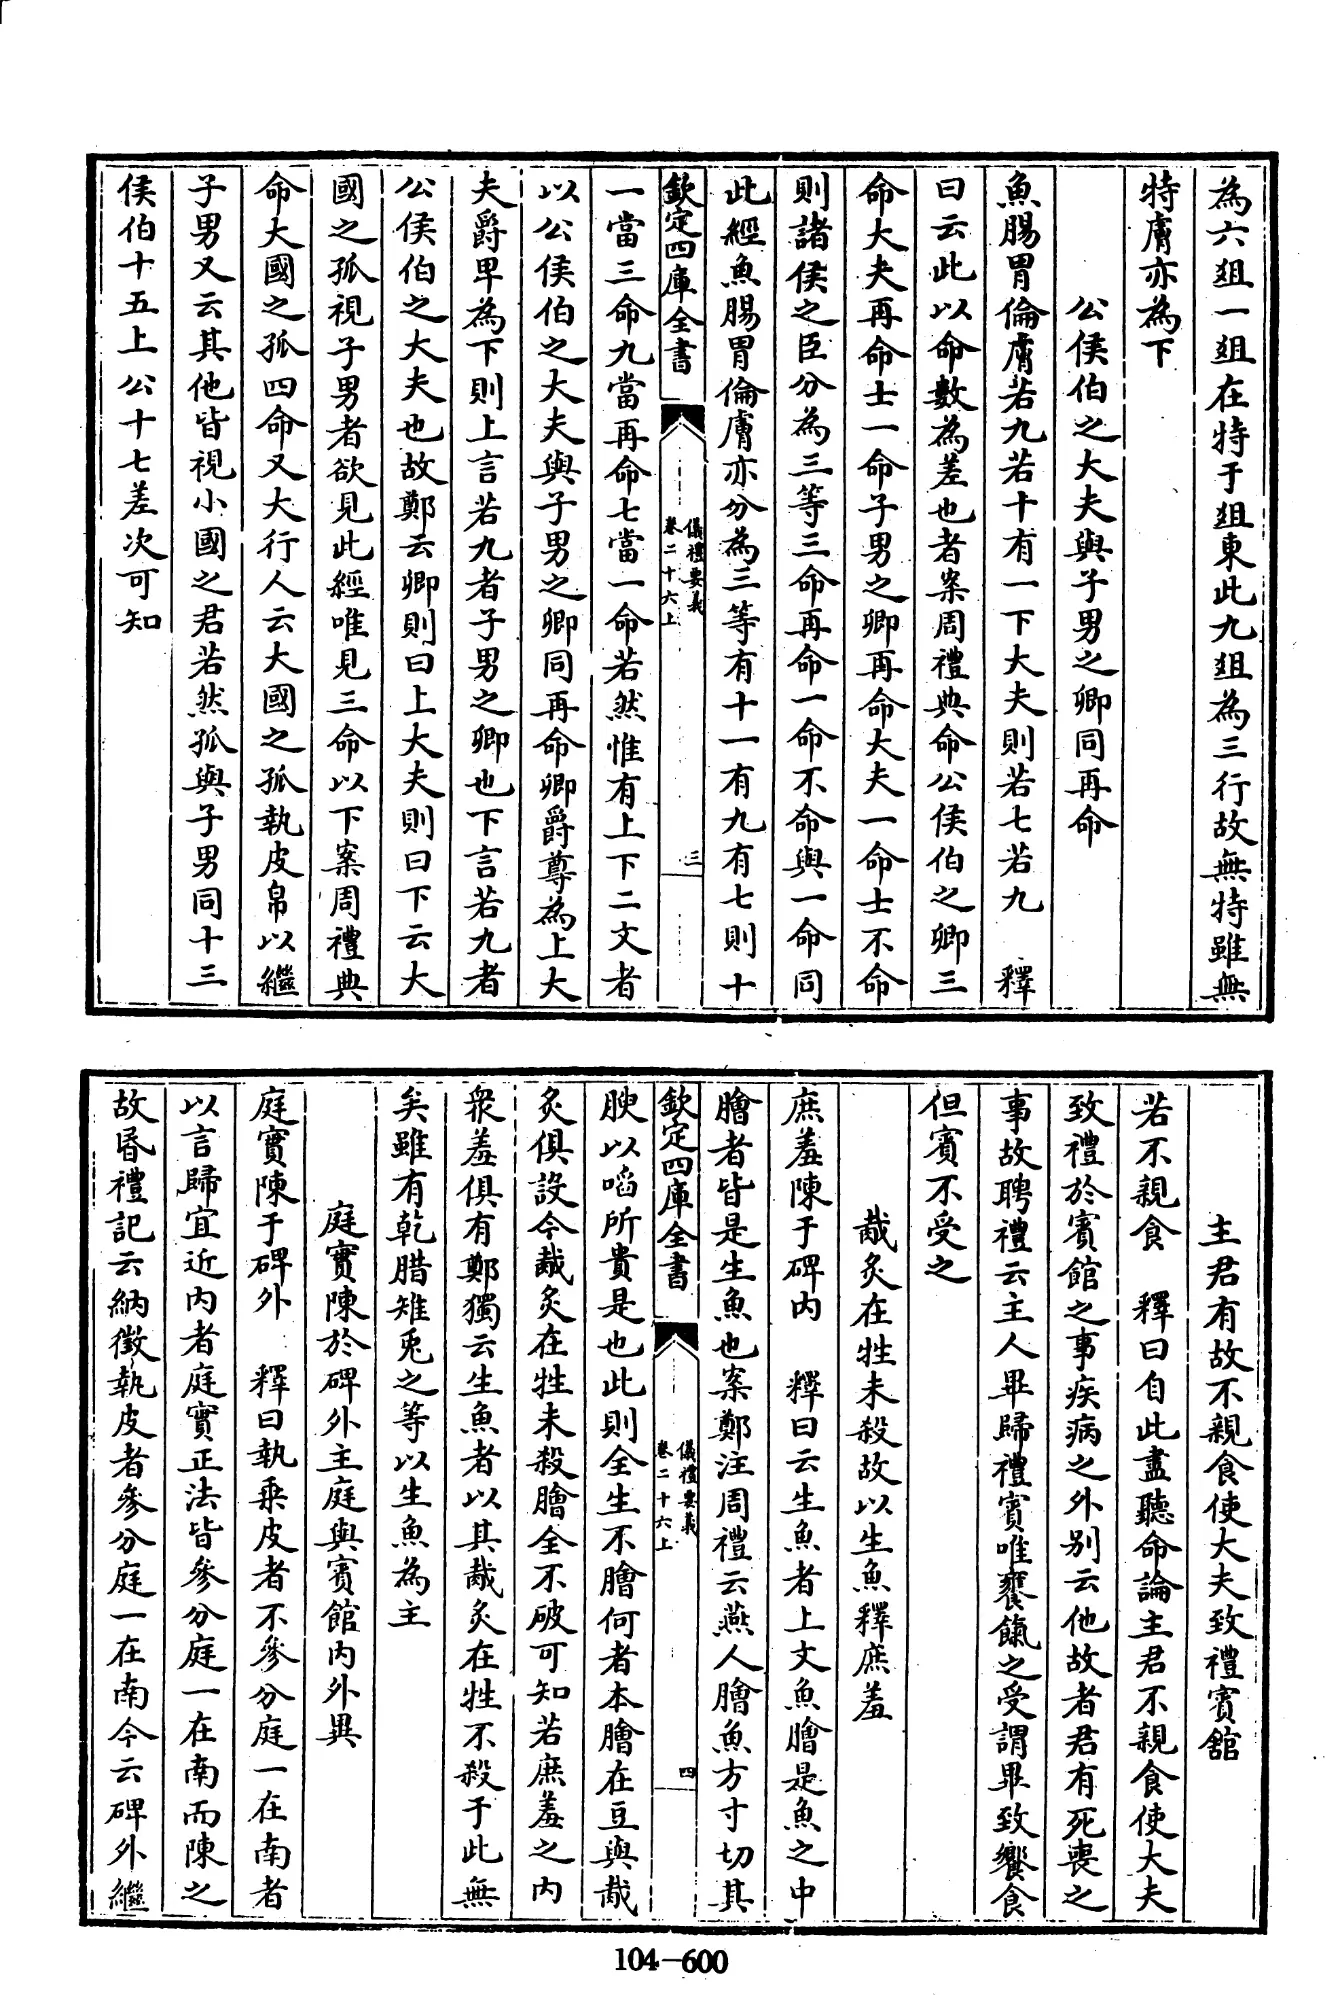 為六俎一俎在特于俎東此九俎為三行故無特雖無
特膚亦為下
公侯伯之大夫與子男之卿同再命
魚腸胃倫膚若九若十有一下大夫則若七若九 釋
曰云此以命數為差也者案周禮典命公侯伯之卿三
命大夫再命士一命子男之卿再命大夫一命士不命
則諸侯之臣分為三等三命再命一命不命與一命同
此經魚腸胃倫膚亦分為三等有十一有九有七則十
欽定四庫全書
儀禮要義
卷二十六上
三
一當三命九當再命七當一命若然惟有上下二文者
以公侯伯之大夫與子男之卿同再命卿爵尊為上大
夫爵卑為下則上言若九者子男之卿也下言若九者
公侯伯之大夫也故鄭云卿則曰上大夫則曰下云大
國之孤視子男者欲見此經唯見三命以下案周禮典
命大國之孤四命又大行人云大國之孤執皮帛以繼
子男又云其他皆視小國之君若然孤與子男同十三
侯伯十五上公十七差次可知
主君有故不親食使大夫致禮賓舘
若不親食 釋曰自此盡聽命論主君不親食使大夫
致禮於賓館之事疾病之外别云他故者君有死喪之
事故聘禮云主人畢歸禮賓唯饔餼之受謂畢致饗食
但賓不受之
胾炙在牲未殺故以生魚釋庶羞
庶羞陳于碑内 釋曰云生魚者上文魚膾是魚之中
膾者皆是生魚也案鄭注周禮云燕人膾魚方寸切其
欽定四庫全書
儀禮要義
卷二十六上
四
腴以啗所貴是也此則全生不膾何者本膾在豆與胾
炙俱設今胾炙在牲未殺膾全不破可知若庶羞之内
衆羞俱有鄭獨云生魚者以其胾炙在牲不殺于此無
矣雖有乾腊雉兎之等以生魚為主
庭實陳於碑外主庭與賓館内外異
庭實陳于碑外 釋曰執乗皮者不參分庭一在南者
以言歸宜近内者庭實正法皆參分庭一在南而陳之
故昏禮記云納徵執皮者參分庭一在南今云碑外繼
104-600